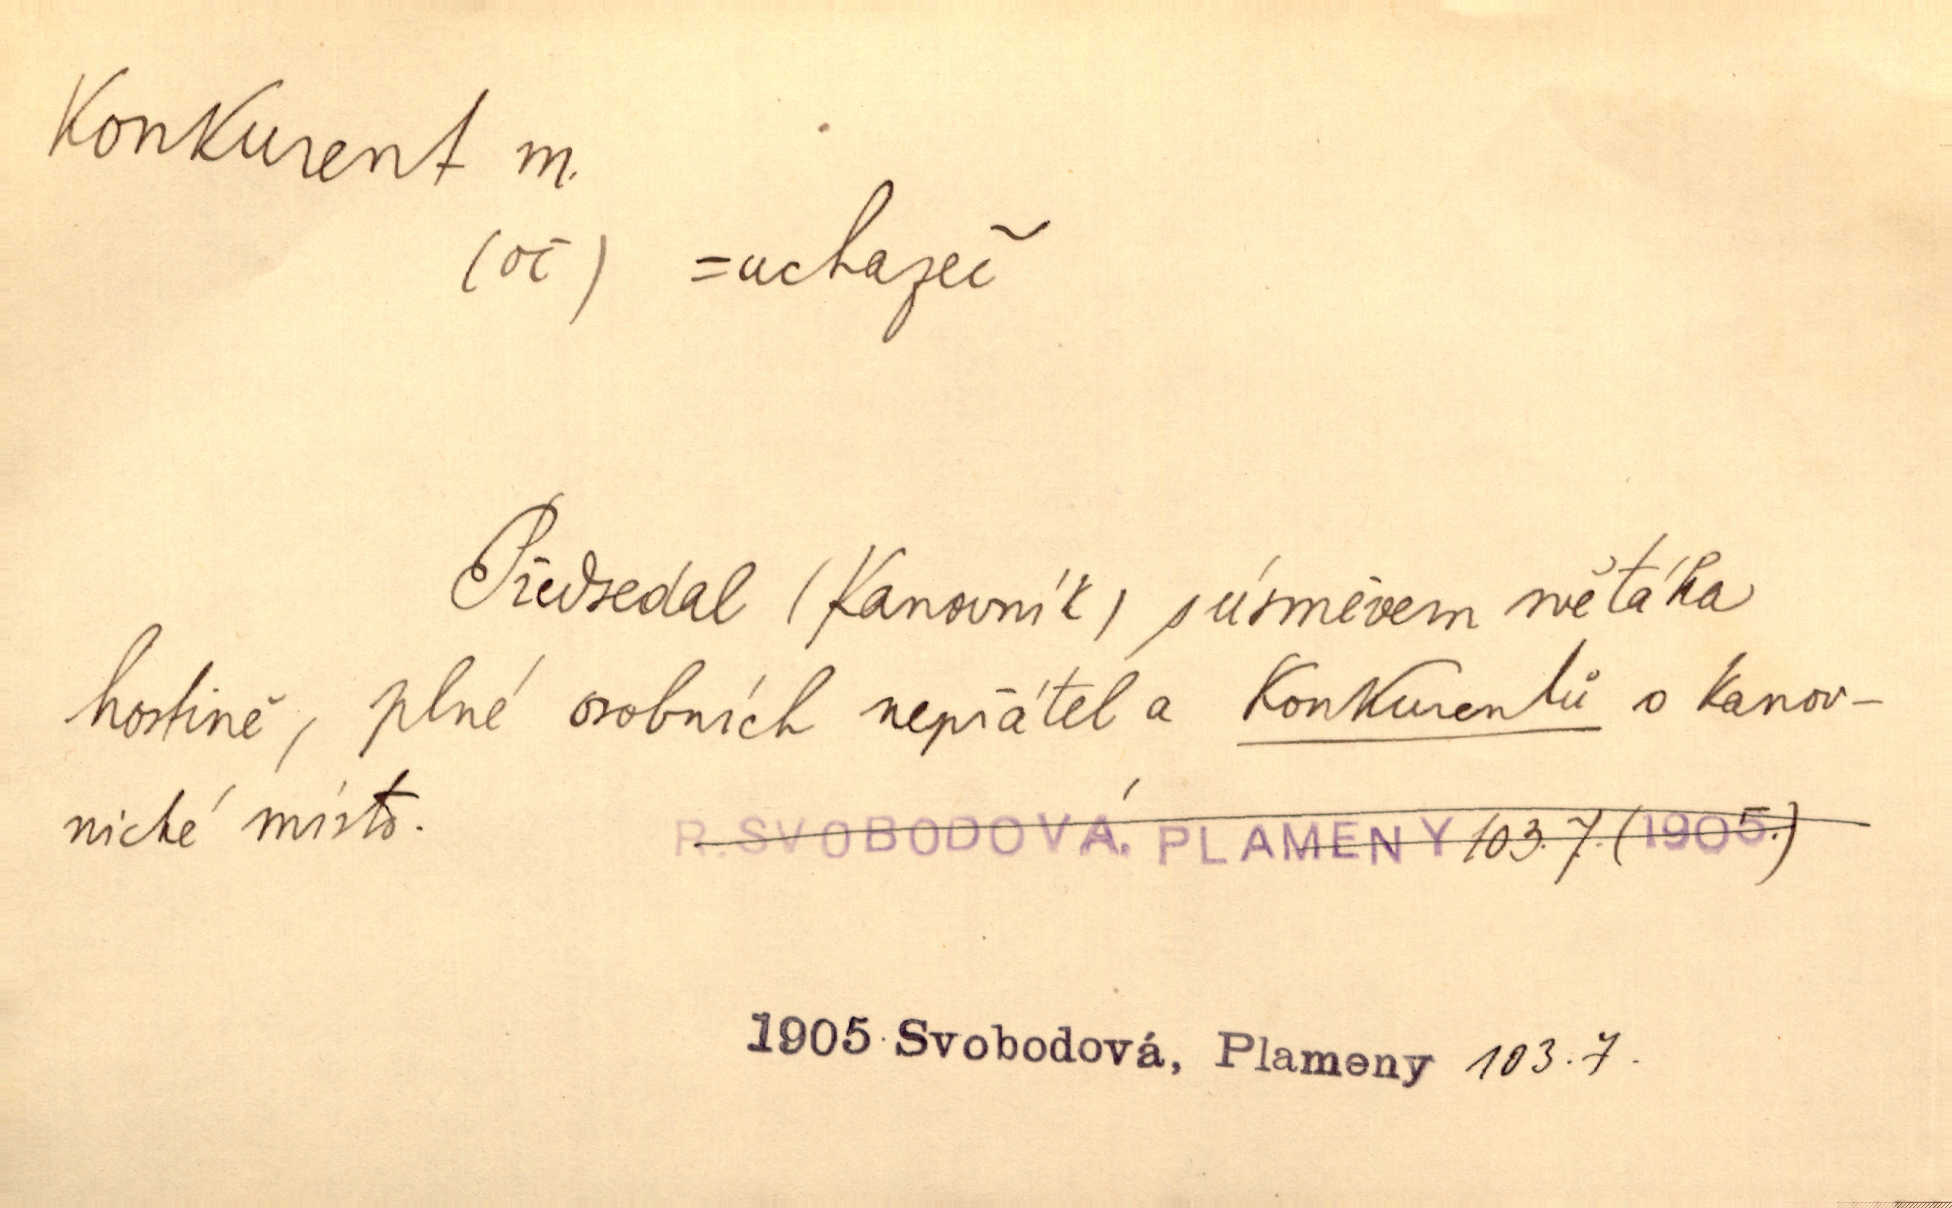 Konkurent m.
(oč) = uchazeč
Předsedal (kanovník) s úsměvem světáka
hostině, plné osobních nepřátel a konkurentů o kanov-
nické místo.
R. SVOBODOVÁ, PLAMENY 103.7. (1905.)
1905 Svobodová, Plameny 103.7.